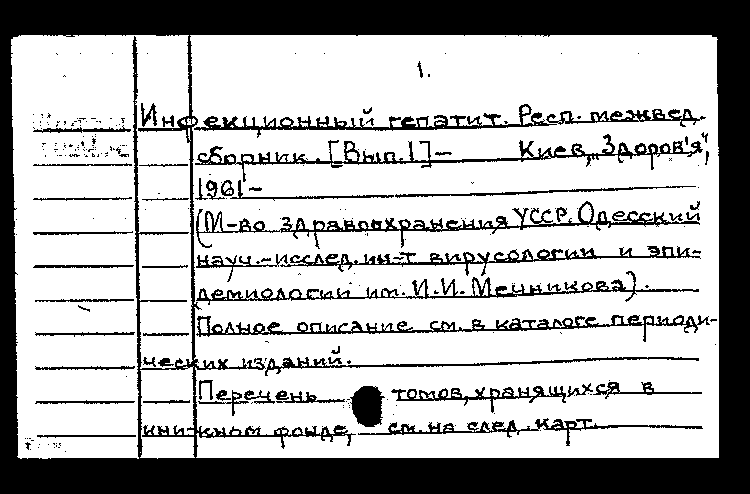 1.
Инфекционный гепатит. Респ. межвед.
сборник. [Вып. 1] – Киев, „Здоров'я",
1961 –
(М-во здравоохранения УССР. Одесский
науч.-исслед. ин-т вирусологии и эпи-
демиологии им. И.И. Мечникова).
Полное описание см. в каталоге периоди-
ческих изданий.
Перечень томов, хранящихся в
книжном фонде, см. на след. карт.